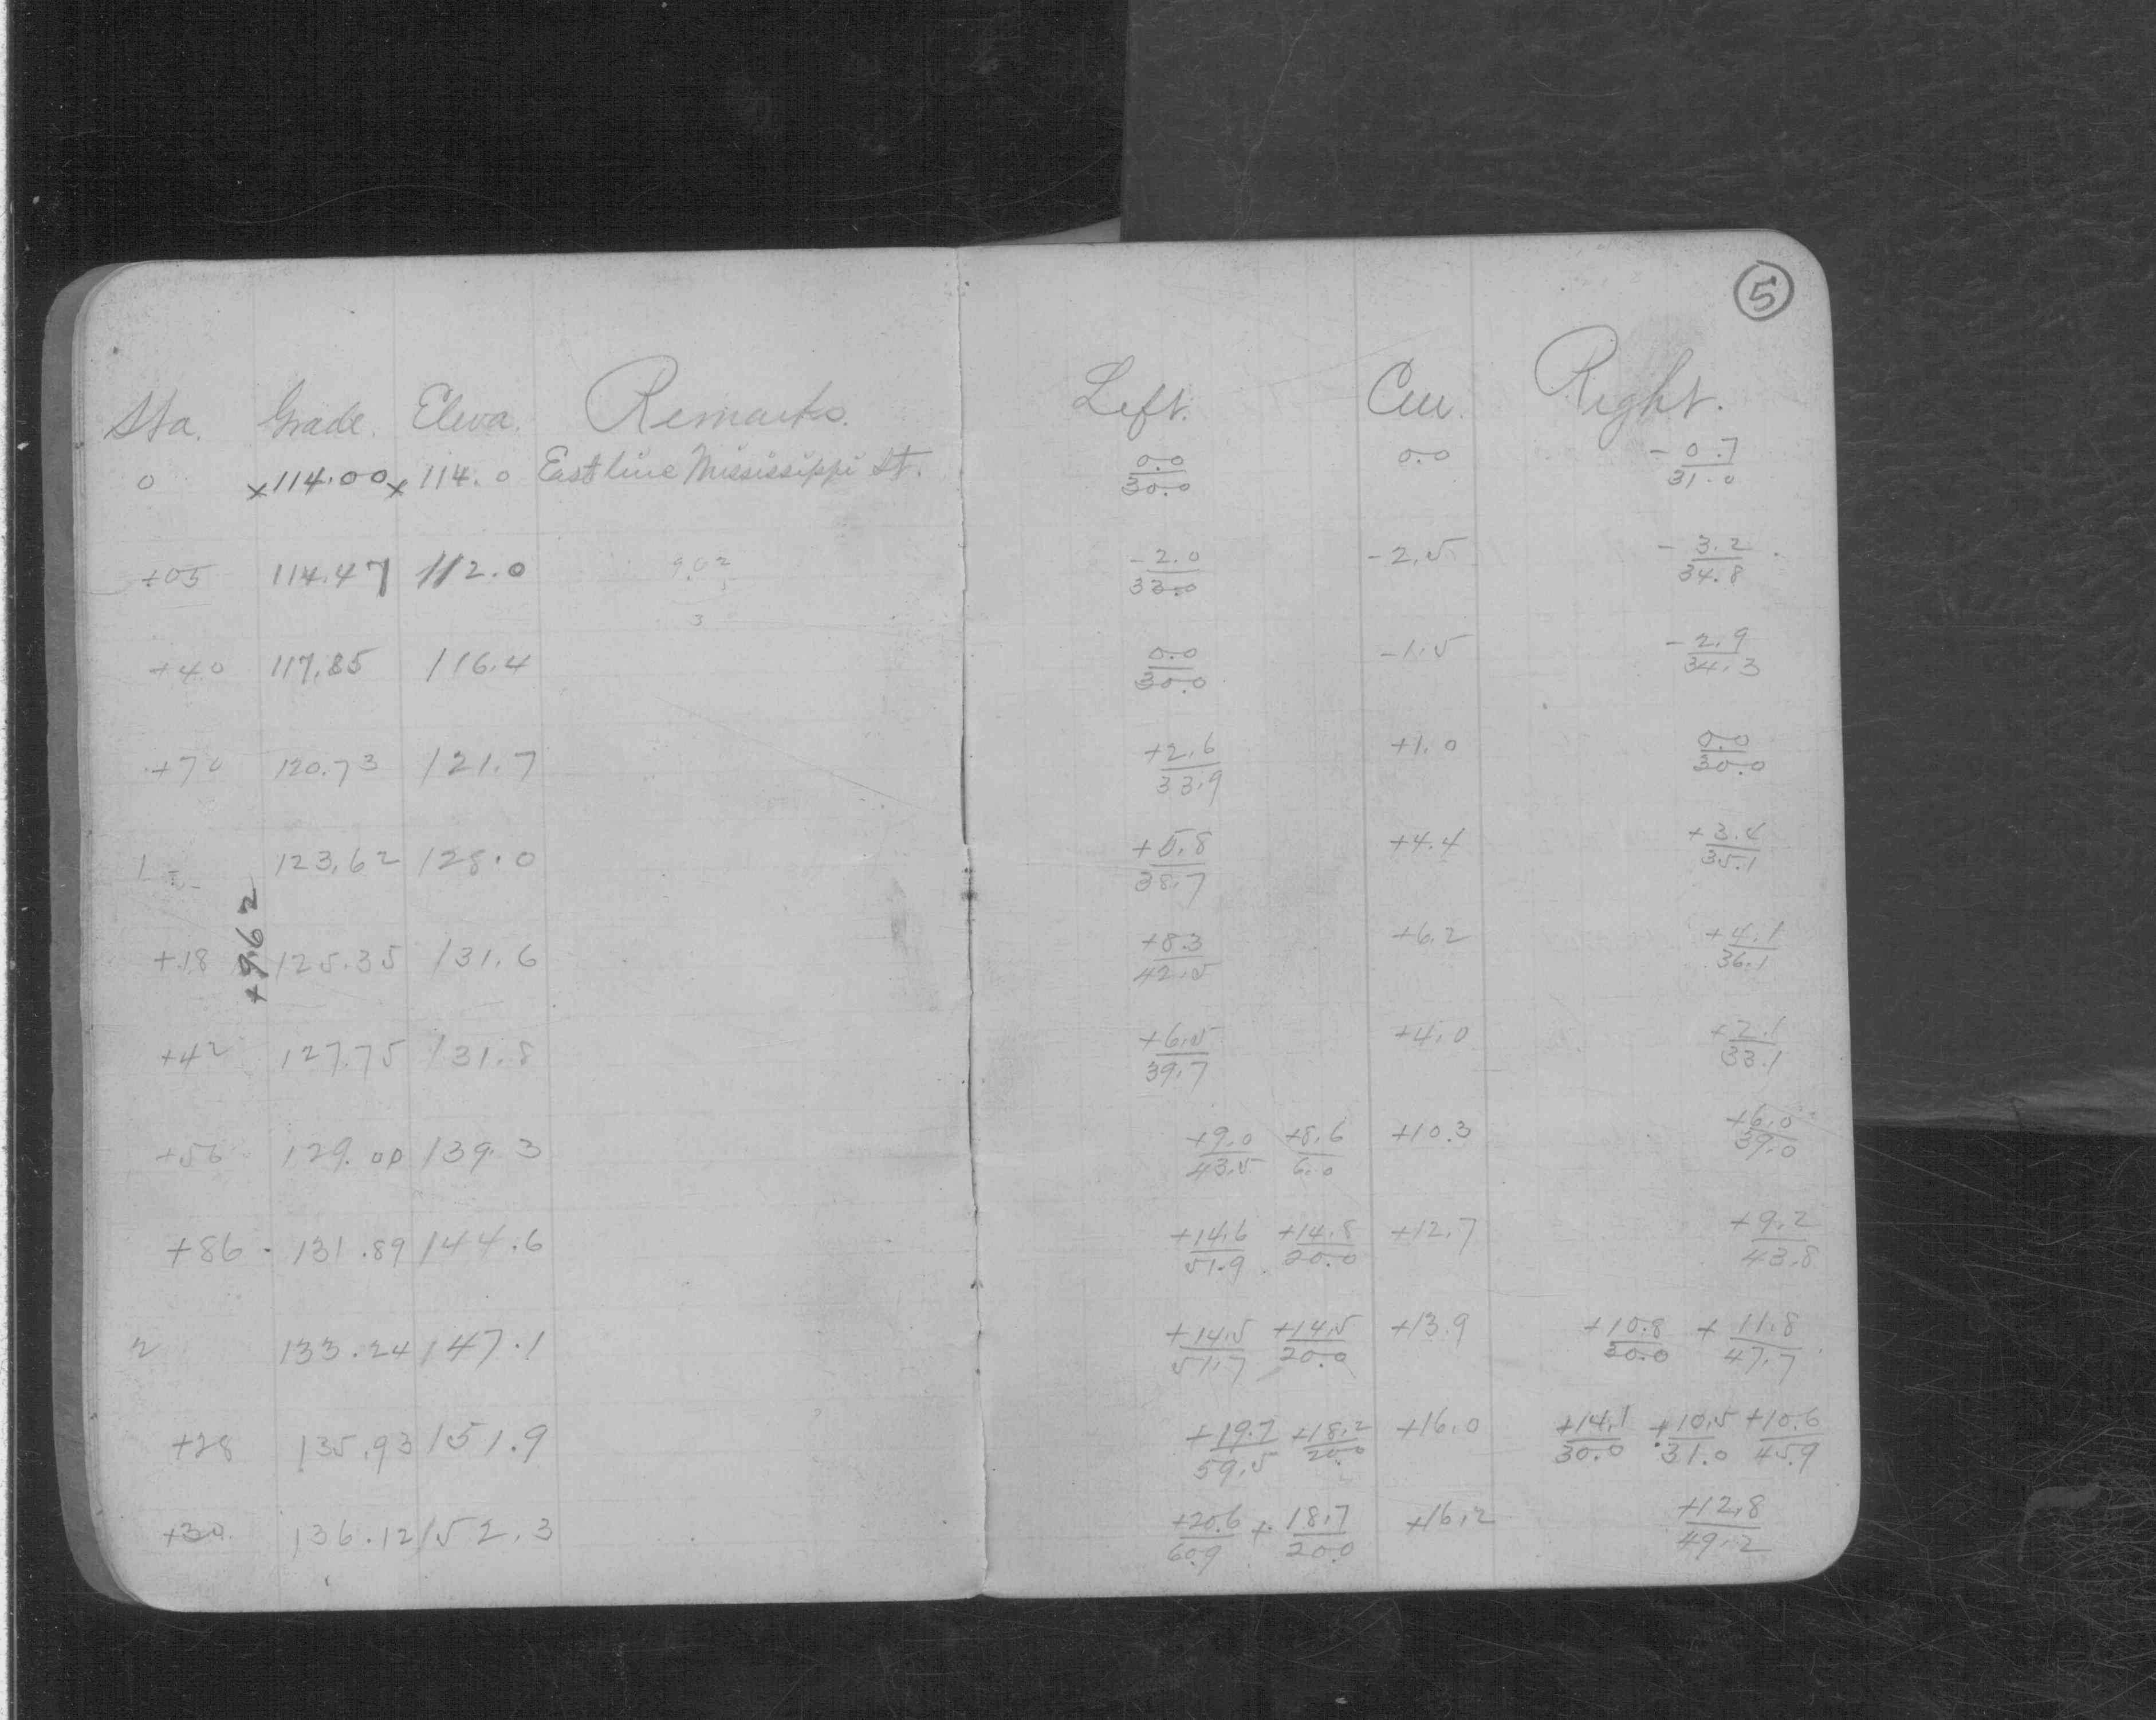 5
Sta. Grade. Eleva. Remarks. Left. Cen. Right.
0 x114.00 x114.0 East line Mississippi St. 0.0/30.0 0.0 -0.7/31.0
+05 114.47 112.0 -2.0/33.0 -2.5 -3.2/34.8
+40 117.85 116.4 0.0/30.0 -1.5 -2.9/34.3
+70 120.73 121.7 +2.6/33.9 +1.0 0.0/30.0
1 123.62 128.0 +5.8/38.7 +4.4 +3.4/35.1
+9.62
+18 125.35 131.6 +8.3/42.5 +6.2 +4.1/36.1
+42 127.75 131.8 +6.5/39.7 +4.0 +2.1/33.1
+56 129.00 139.3 +9.0/43.5 +8.6/6.0 +10.3 +6.0/39.0
+86 131.89 144.6 +14.6/51.9 +14.8/20.0 +12.7 +9.2/43.8
2 133.24 147.1 +14.5/51.7 +14.5/20.0 +13.9 +10.8/30.0 +11.8/47.7
+28 135.93 151.9 +19.7/59.5 +18.2/20.0 +16.0 +14.1/30.0 +10.5/31.0 +10.6/45.9
+30 136.12 152.3 +20.6/60.9 +18.7/20.0 +16.2 +12.8/49.2